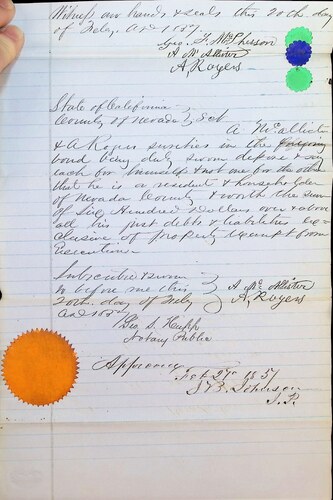 Witness our hands & seals this 20th day
of Feby. AD 1857
Geo. F. McPherson
A McAlister
A, Rogers
State of California
County of Nevada } Sct
A McAllister
& A Rogers sureties in the foregoing
bond being duly sworn depose & say
each for himself & not one for the other
that he is a resident & householder
of Nevada County & worth the sum
of Six Hundred Dollars over & above
all his just debts & liabilities ex-
clusive of property exempt from
Execution
Subscribed & sworn
to before me this
20th day of Feby
A Mc Alister
A, Rogers
Geo. S. Hupp
Notary Public
Approved
Feb 27th 1857
Johnson